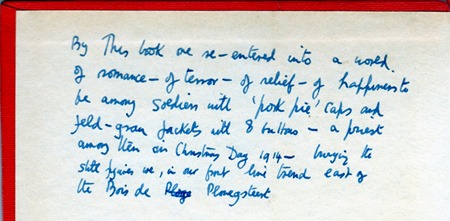 By This book we re-entered into a world
of romance – of terror – of relief – of happiness to
be among soldiers with 'pork pie' caps and
field-green jackets with 8 buttons – a
among them on Christmas Day 1914 – burying the
stiff figures we, in our front line trench east of
the Bois de Ploegsteert